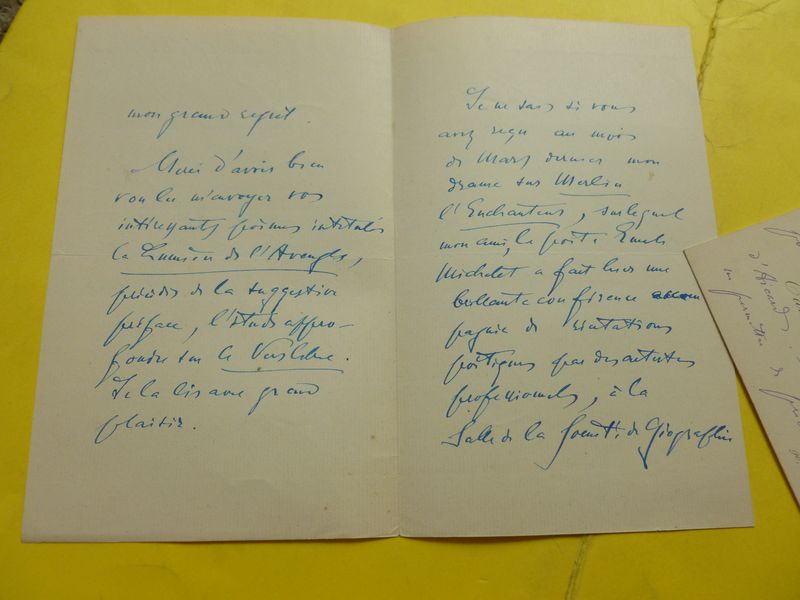 mon grand regret.
Merci d'avoir bien
voulu m'envoyer vos
intéressants poèmes intitulés
la Lumière de l'Aveugle,
précédés de la suggestive
préface, l'étude appro-
fondie sur le Vers libre.
Je la lis avec grand
plaisir.
Je ne sais si vous
avez reçu au mois
de Mars dernier mon
drame sur Merlin
l'Enchanteur, sur lequel
mon ami, le poète Emile
Michelet a fait hier une
brillante conférence accom
pagnée de récitations
poétiques par des artistes
professionnels, à la
Salle de la Société de Géographie
d'Aicard